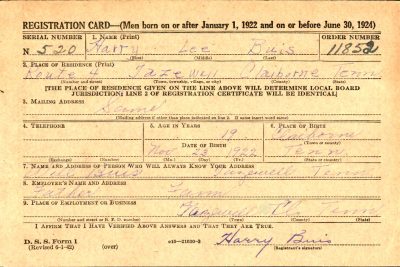 REGISTRATION CARD—(Men born on or after January 1, 1922 and on or before June 30, 1924)
SERIAL NUMBER 1. NAME (Print) ORDER NUMBER
N 520 Harry Lee Buis 11852
(First) (Middle) (Last)
2. PLACE OF RESIDENCE (Print)
Route 4 Claiborne Tenn
(Number and street) (Town, township, village, or city) (County) (State)
[THE PLACE OF RESIDENCE GIVEN ON THE LINE ABOVE WILL DETERMINE LOCAL BOARD
JURISDICTION; LINE 2 OF REGISTRATION CERTIFICATE WILL BE IDENTICAL]
3. MAILING ADDRESS
Same
[Mailing address if other than place indicated on line 2. If same insert word same]
4. TELEPHONE 5. AGE IN YEARS 6. PLACE OF BIRTH
19 Claiborne
DATE OF BIRTH (Town or county)
Nov 1922 Tenn
(Exchange) (Number) (Mo.) (Day) (Yr.) (State or country)
7. NAME AND ADDRESS OF PERSON WHO WILL ALWAYS KNOW YOUR ADDRESS
Buis Tazewell Tenn
8. EMPLOYER'S NAME AND ADDRESS
Father Farm
9. PLACE OF EMPLOYMENT OR BUSINESS
Tazewell Tenn
(Number and street or R. F. D. number) (Town) (County) (State)
I AFFIRM THAT I HAVE VERIFIED ABOVE ANSWERS AND THAT THEY ARE TRUE.
D. S. S. Form 1
(Revised 6-1-42) (over) 16—21630-2 Harry Buis
(Registrant's signature)